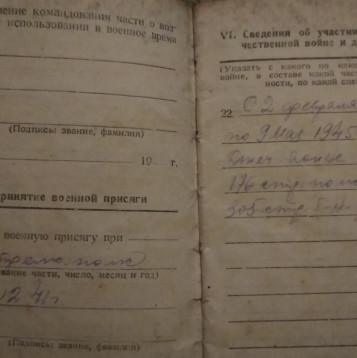 ение командования части о воз-
использовании в военное время
(Подписы звание, фамилия)
19 г.
принятие военной присяги
военную присягу при
вание части, число, месяц и год)
(Подписы звание, фамилия)
VI. Сведения об участии
чественной войне и д
(Указать с какого по как
войне, в составе какой част
ности, по какой спе
22 С 2 февраля
по 9 мая 1945
176 стр. полк
305 стр.